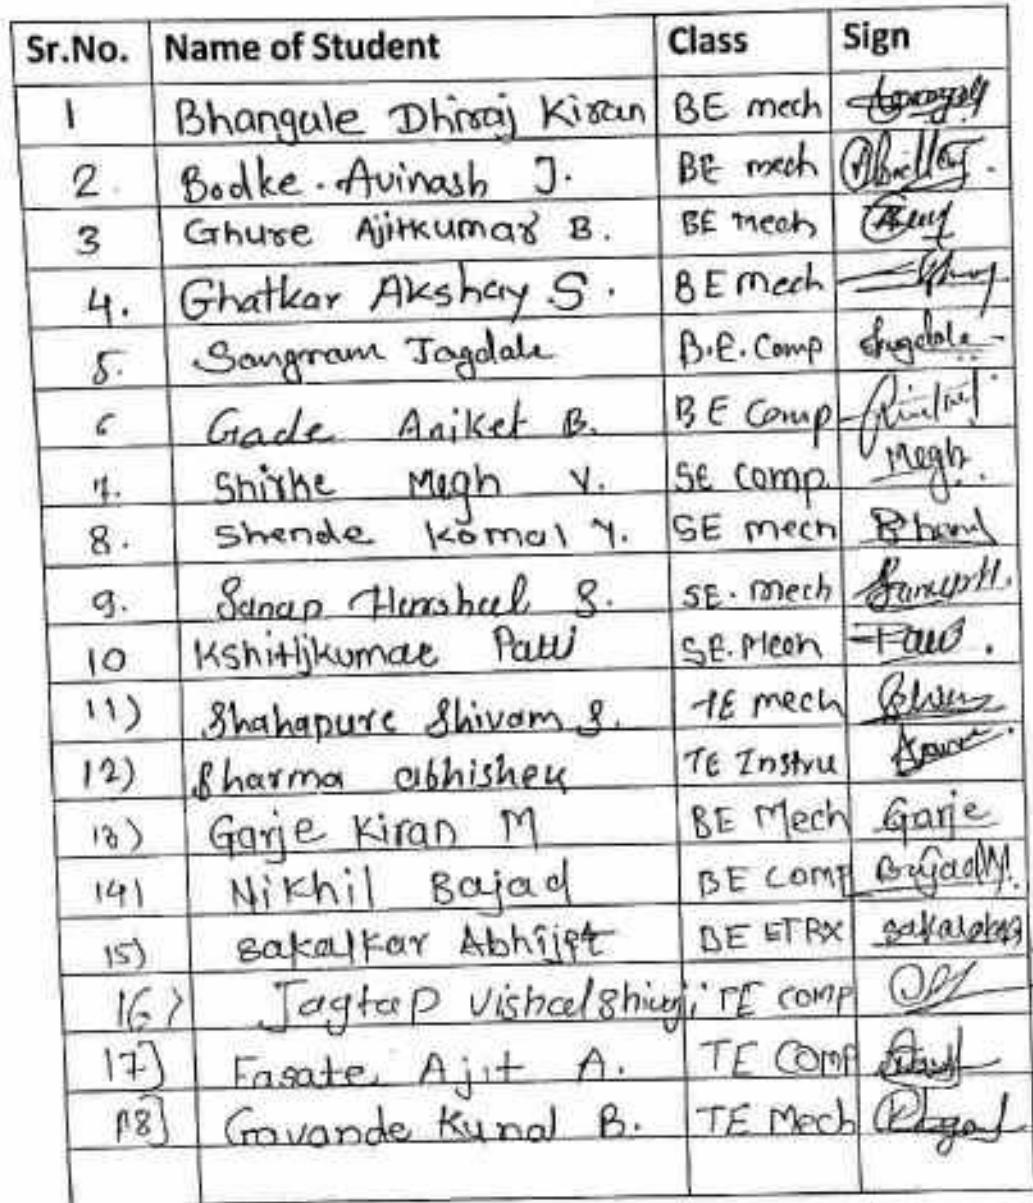 Sr.No. Name of Student Class Sign
1 Bhangale Dhiraj Kiran BE mech
2. Bodke. Avinash J. BE mech
3 Ghure Ajitkumar B. BE mech
4. Ghatkar Akshay S. BE mech
5. Sangram Jagdale B.E. Comp Jagdale
6 Gade Aniket B. BE Comp
7. Shirke Megh V. SE comp. Megh.
8. Shende Komal Y. SE mech
9. Sanap Harshal S. SE. mech
10 Kshitijkumar Patil SE. Mech
11) Shahapure Shivam S. TE mech
12) Sharma abhishek TE Instru
13) Garje Kiran M BE Mech Garje
14) Nikhil Bajad BE COMP
15) Sakalkar Abhijit BE ETRX
16) Jagtap Vishal Shivaji TE COMP
17] Fasate, Ajit A. TE COMP
18] Gavande Kunal B. TE Mech